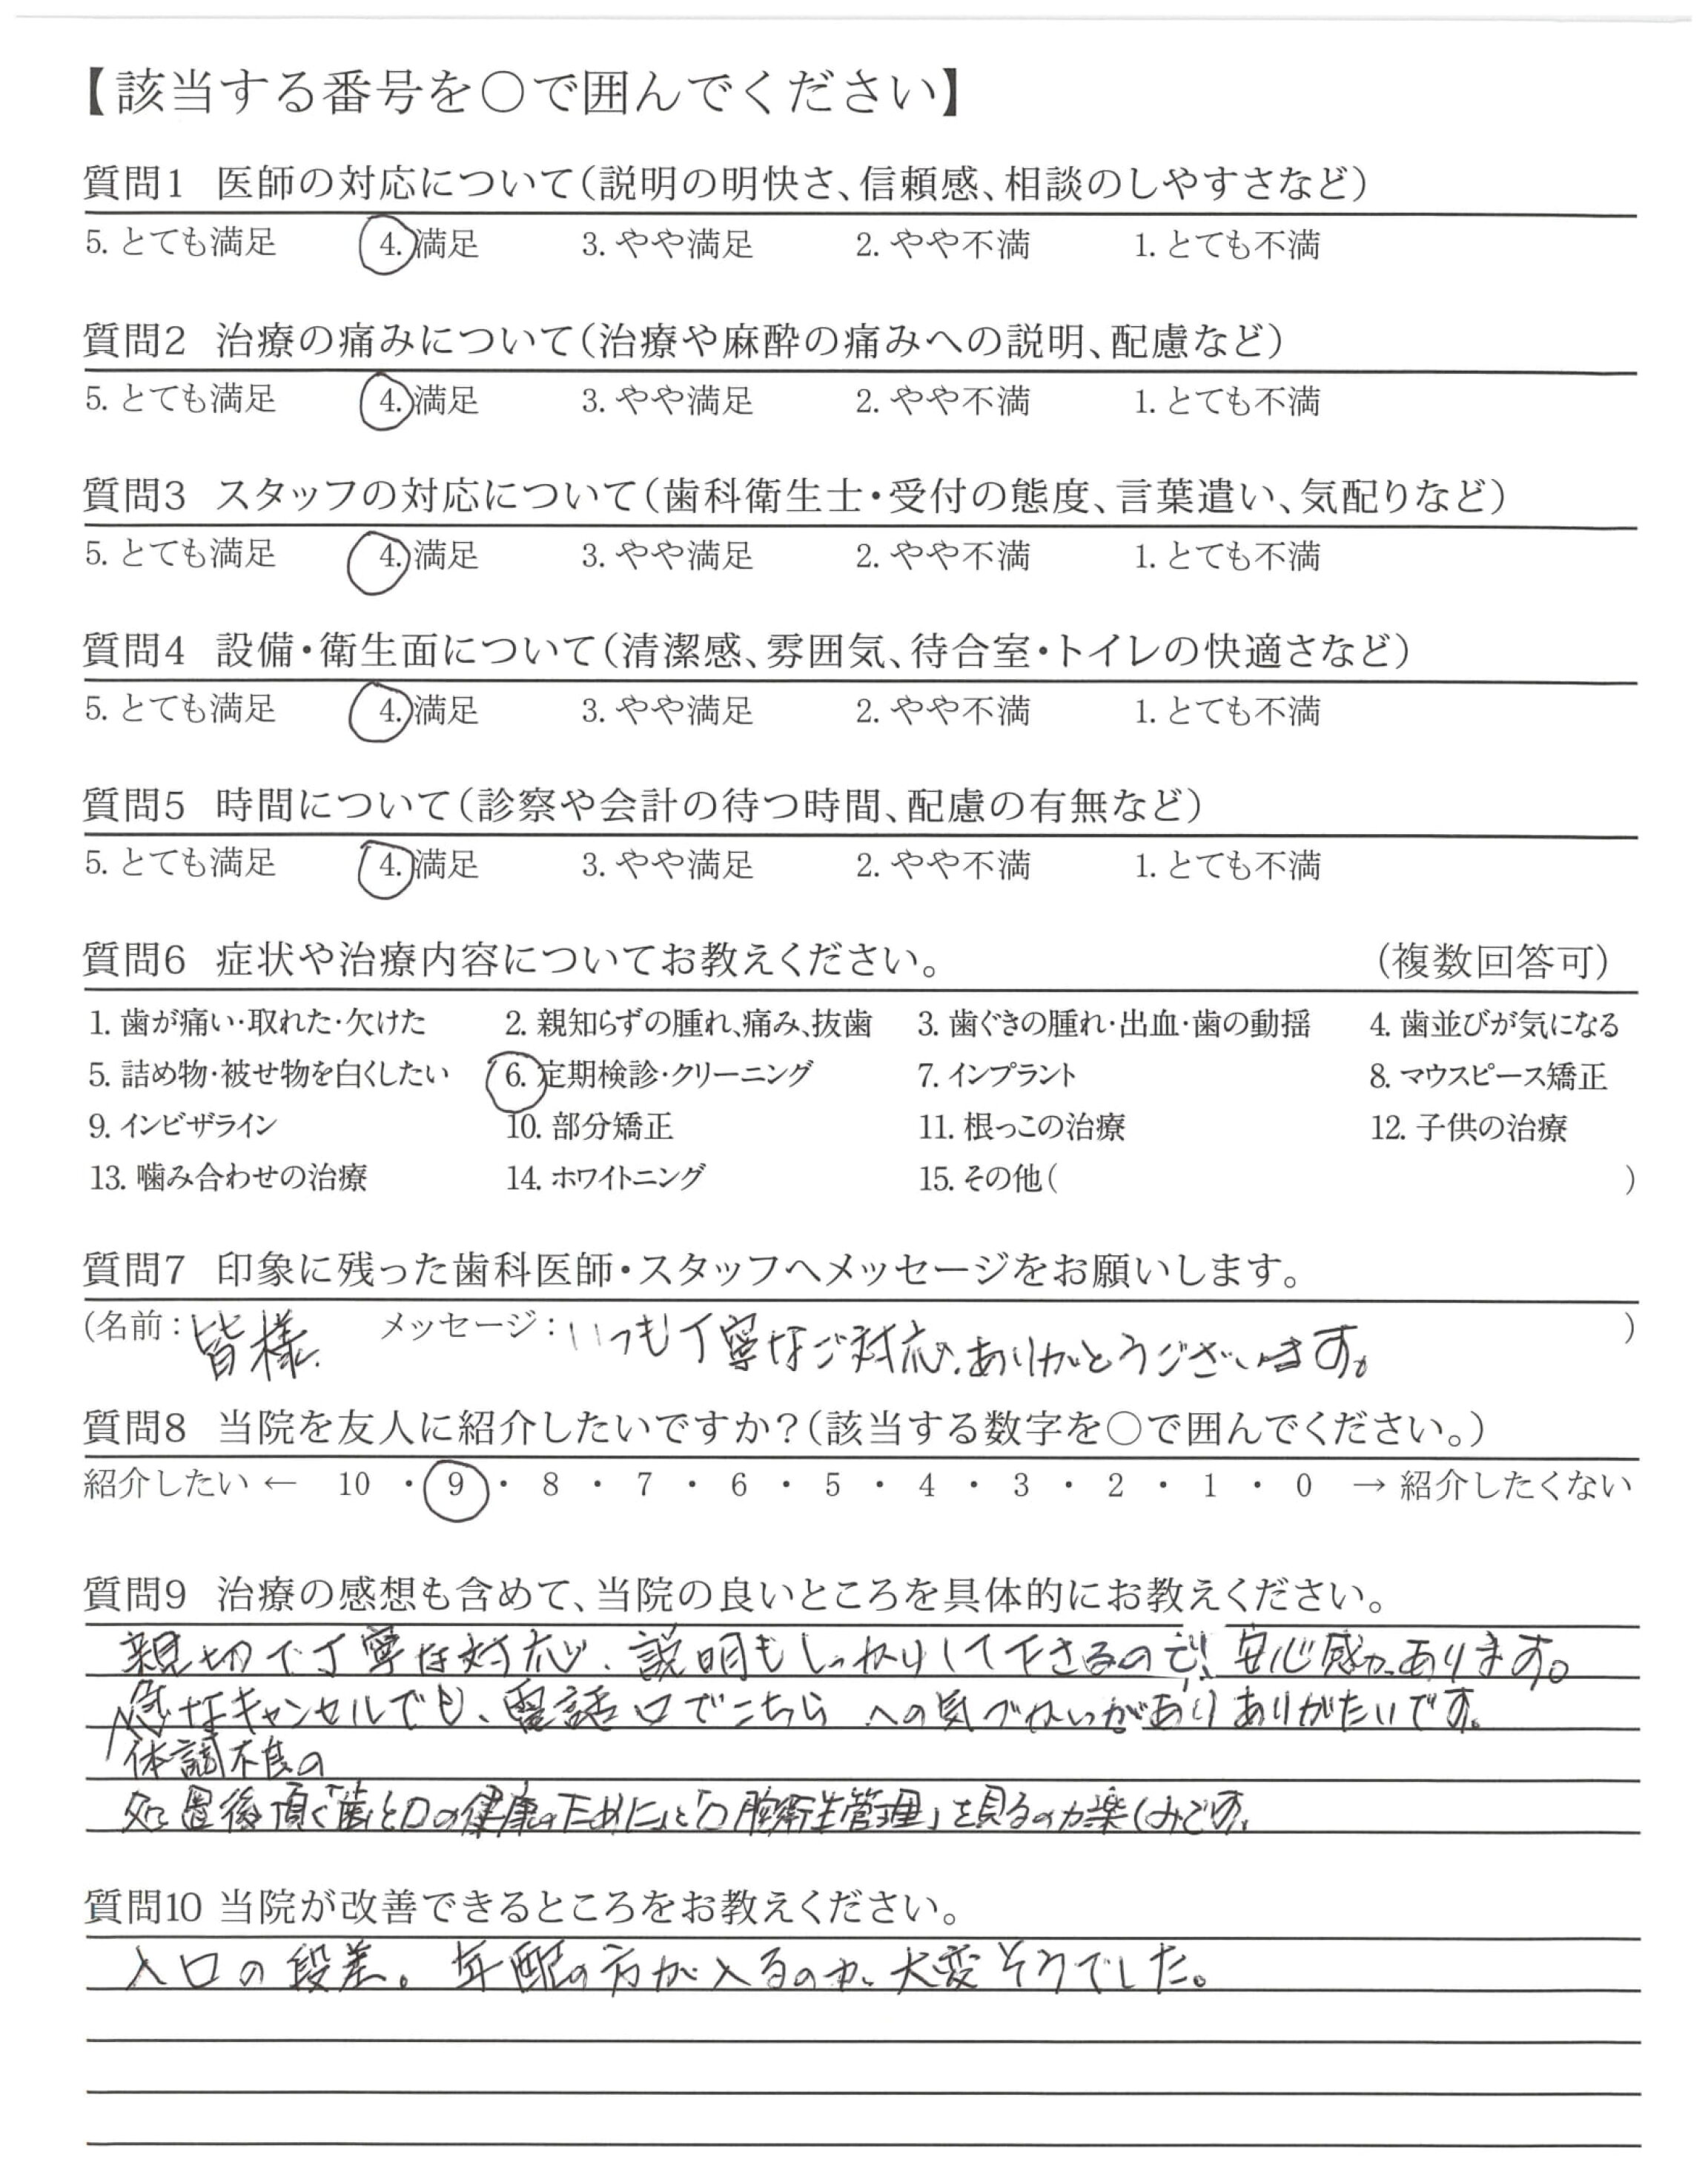 【該当する番号を○で囲んでください】
質問1 医師の対応について(説明の明快さ、信頼感、相談のしやすさなど)
5. とても満足 4. 満足 3. やや満足 2. やや不満 1. とても不満
質問2 治療の痛みについて(治療や麻酔の痛みへの説明、配慮など)
5. とても満足 4. 満足 3. やや満足 2. やや不満 1. とても不満
質問3 スタッフの対応について(歯科衛生士・受付の態度、言葉遣い、気配りなど)
5. とても満足 4. 満足 3. やや満足 2. やや不満 1. とても不満
質問4 設備・衛生面について(清潔感、雰囲気、待合室・トイレの快適さなど)
5. とても満足 4. 満足 3. やや満足 2. やや不満 1. とても不満
質問5 時間について(診察や会計の待つ時間、配慮の有無など)
5. とても満足 4. 満足 3. やや満足 2. やや不満 1. とても不満
質問6 症状や治療内容についてお教えください。 (複数回答可)
1. 歯が痛い・取れた・欠けた 2. 親知らずの腫れ、痛み、抜歯 3. 歯ぐきの腫れ・出血・歯の動揺 4. 歯並びが気になる
5. 詰め物・被せ物を白くしたい 6. 定期検診・クリーニング 7. インプラント 8. マウスピース矯正
9. インビザライン 10. 部分矯正 11. 根っこの治療 12. 子供の治療
13. 噛み合わせの治療 14. ホワイトニング 15. その他( )
質問7 印象に残った歯科医師・スタッフへメッセージをお願いします。
(名前: 皆様 メッセージ: いつも丁寧なご対応、ありがとうございます。 )
質問8 当院を友人に紹介したいですか?(該当する数字を○で囲んでください。)
紹介したい ← 10 ・ 9 ・ 8 ・ 7 ・ 6 ・ 5 ・ 4 ・ 3 ・ 2 ・ 1 ・ 0 → 紹介したくない
質問9 治療の感想も含めて、当院の良いところを具体的にお教えください。
親切で丁寧な対応、説明もしっかりして下さるので、安心感があります。
急なキャンセルでも、電話口でこちらへの気づかいがありありがたいです。
体調不良の
処置後頂く「歯と口の健康のために」と「口腔衛生管理」を見るのが楽しみです。
質問10 当院が改善できるところをお教えください。
入口の段差。年配の方が入るのが、大変そうでした。